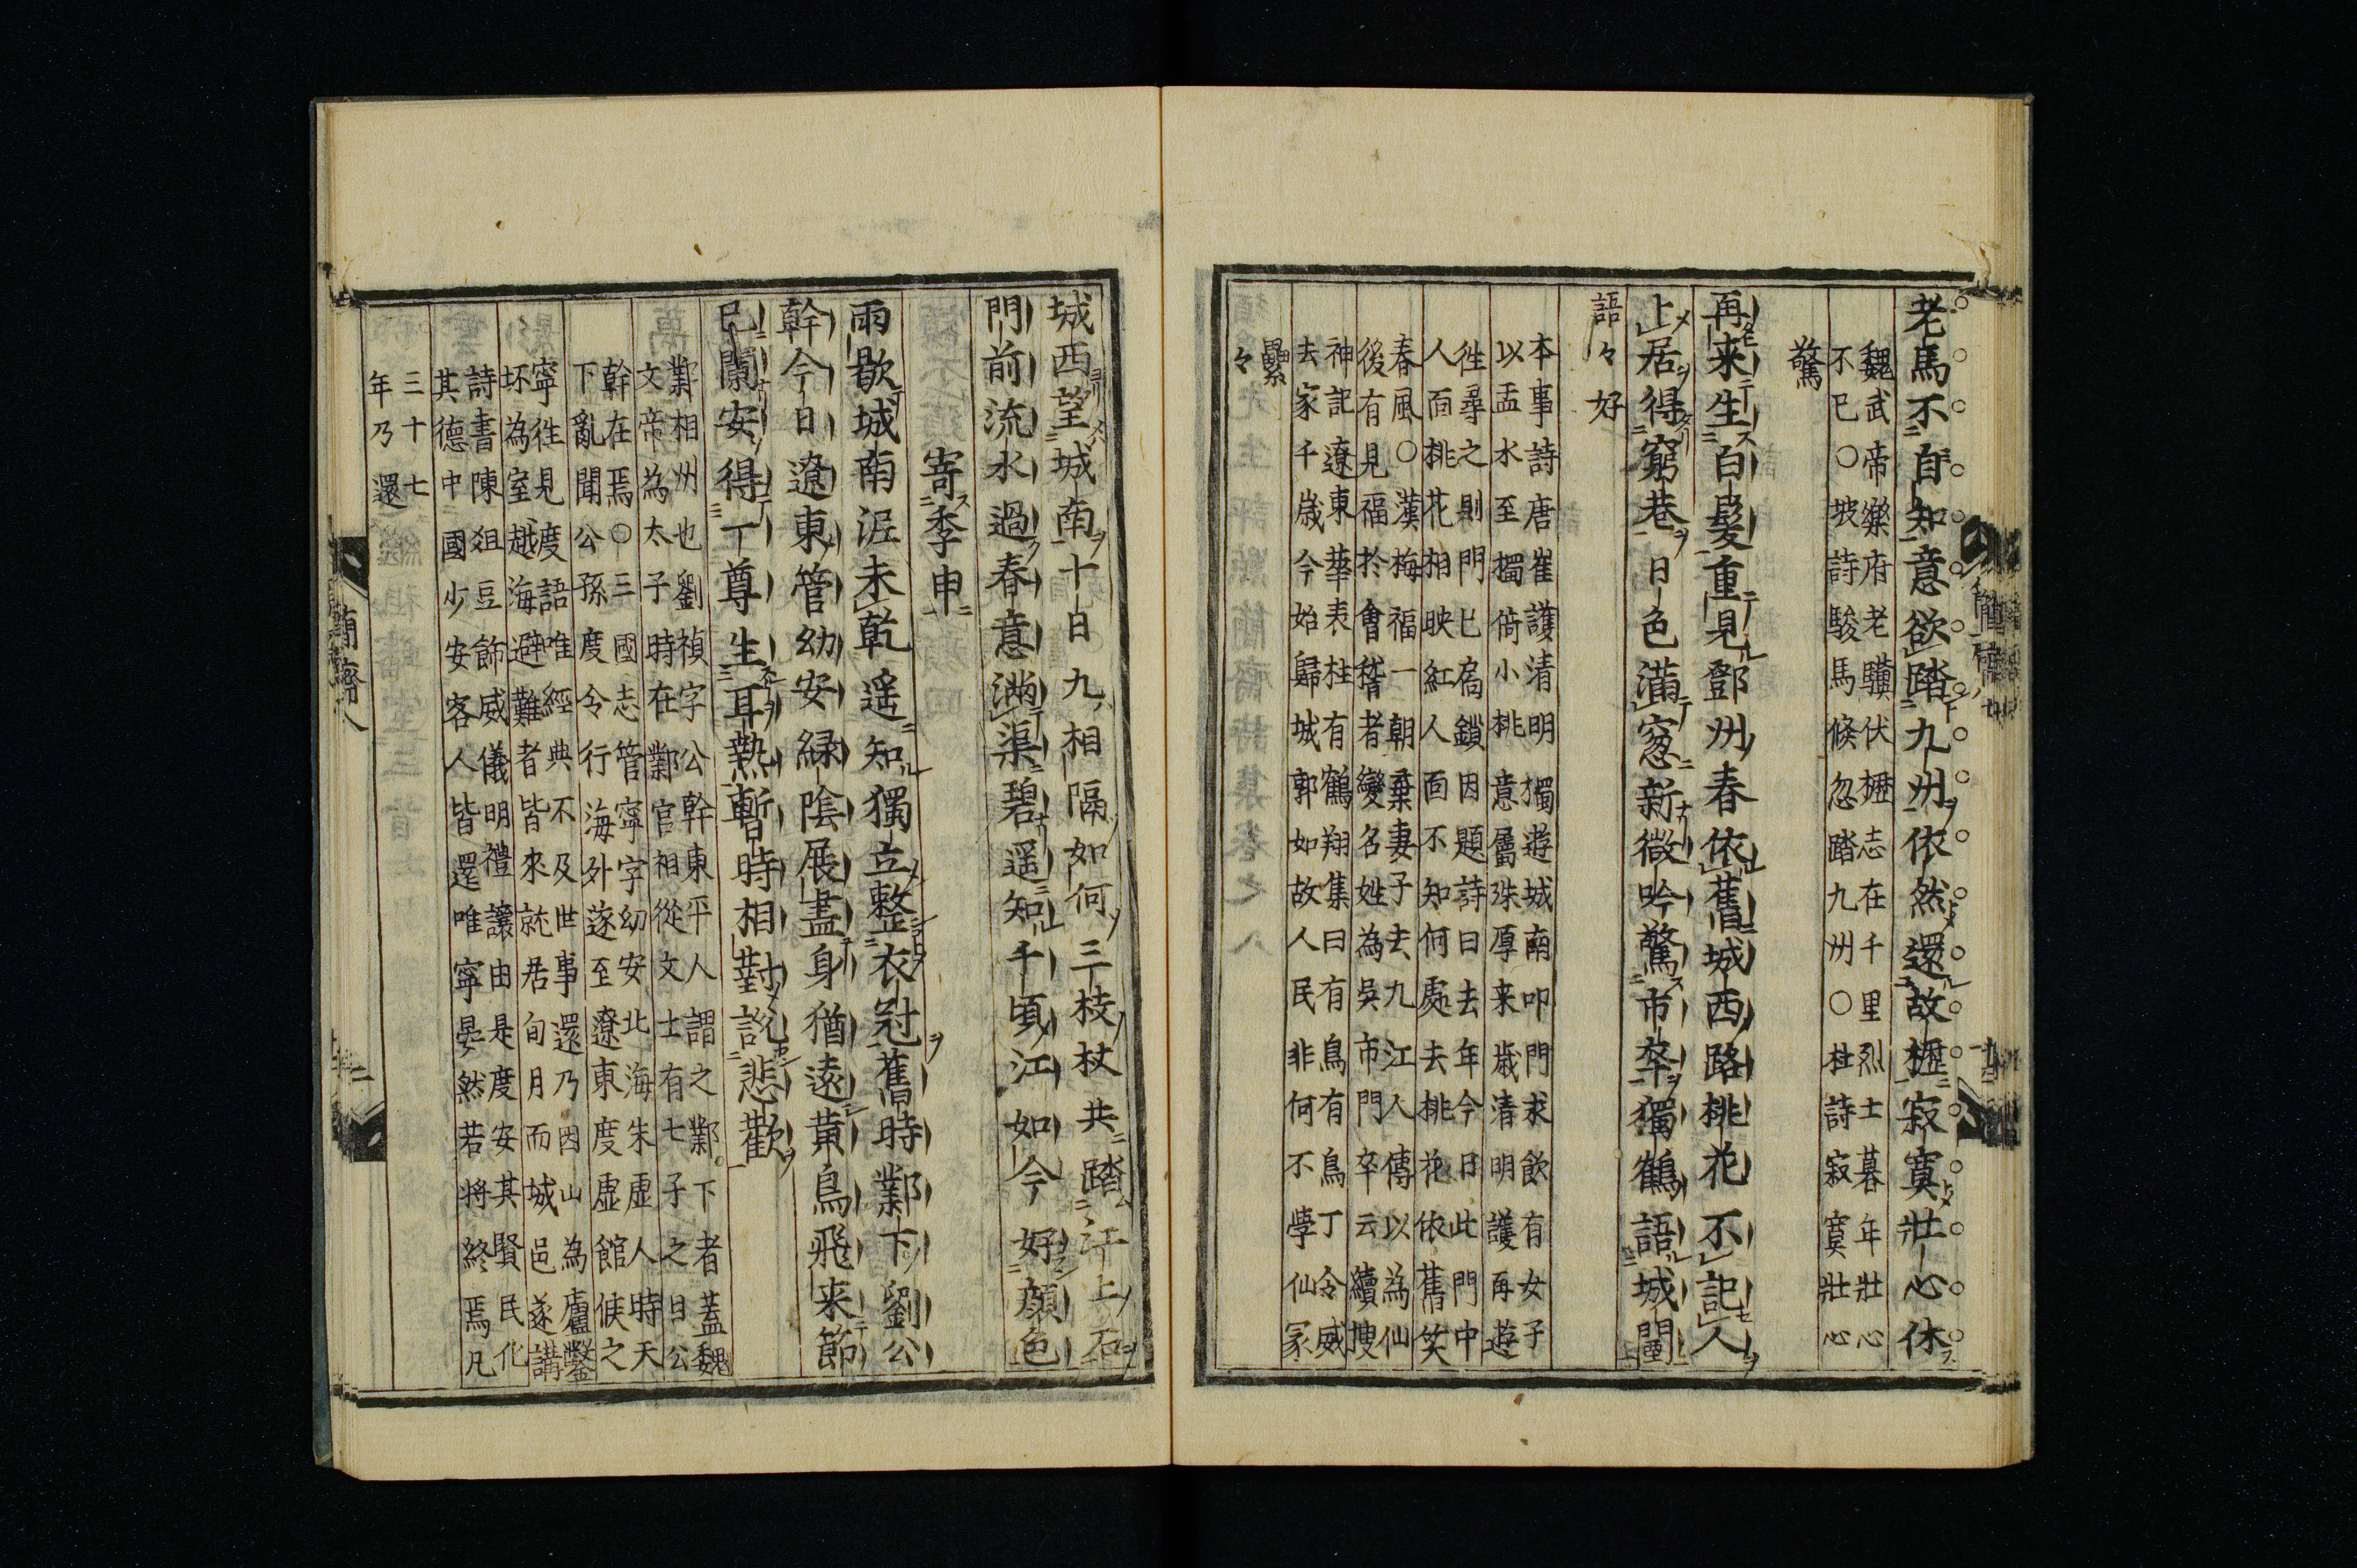 老馬不自知意欲踏九州依然還故櫪寂寞壯心休
魏武帝樂府老驥伏櫪志在千里烈士暮年壯心
不已○坡詩駿馬倏忽踏九州○杜詩寂寞壯心
驚
再来生白髮重見鄧州春依舊城西路桃花不記人
上居得窮巷日色滿窓新微吟驚市卒獨鶴語城闉
語々好
本事詩唐崔護清明獨遊城南叩門求飲有女子
以盂水至獨倚小桃意屬殊厚来歲清明護再遊
徃尋之則門已扃鎖因題詩曰去年今日此門中
人面桃花相映紅人面不知何處去桃花依舊笑
春風○漢梅福一朝棄妻子去九江人傳以為仙
後有見福於會稽者變名姓為吳市門卒云續搜
神記遼東華表柱有鶴翔集曰有鳥有鳥丁令威
去家千歲今始歸城郭如故人民非何不學仙冢
纍
々
城西望城南十日九相隔如何三枝杖共踏江上石
門前流水過春意滿渠碧遥知千頃江如今好顔色
寄季申
雨歇城南泥未乾遥知獨立整衣冠舊時鄴下劉公
幹今日遼東管幼安緑陰展盡身猶遠黄鳥飛来節
已闌安得一尊生耳熱暫時相對說悲歡
鄴相州也劉禎字公幹東平人謂之鄴下者蓋魏
文帝為太子時在鄴官相從文士有七子之日公
幹在焉○三國志管寧字幼安北海朱虛人時天
下亂聞公孫度令行海外遂至遼東度虛館候之
寧徃見度語唯經典不及世事還乃因山為廬鑿
坏為室越海避難者皆來就居旬月而城邑遂講
詩書陳俎豆飾威儀明禮讓由是度安其賢民化
其德中國少安客人皆還唯寧晏然若將終焉凡
三十七
年乃還
簡齋八